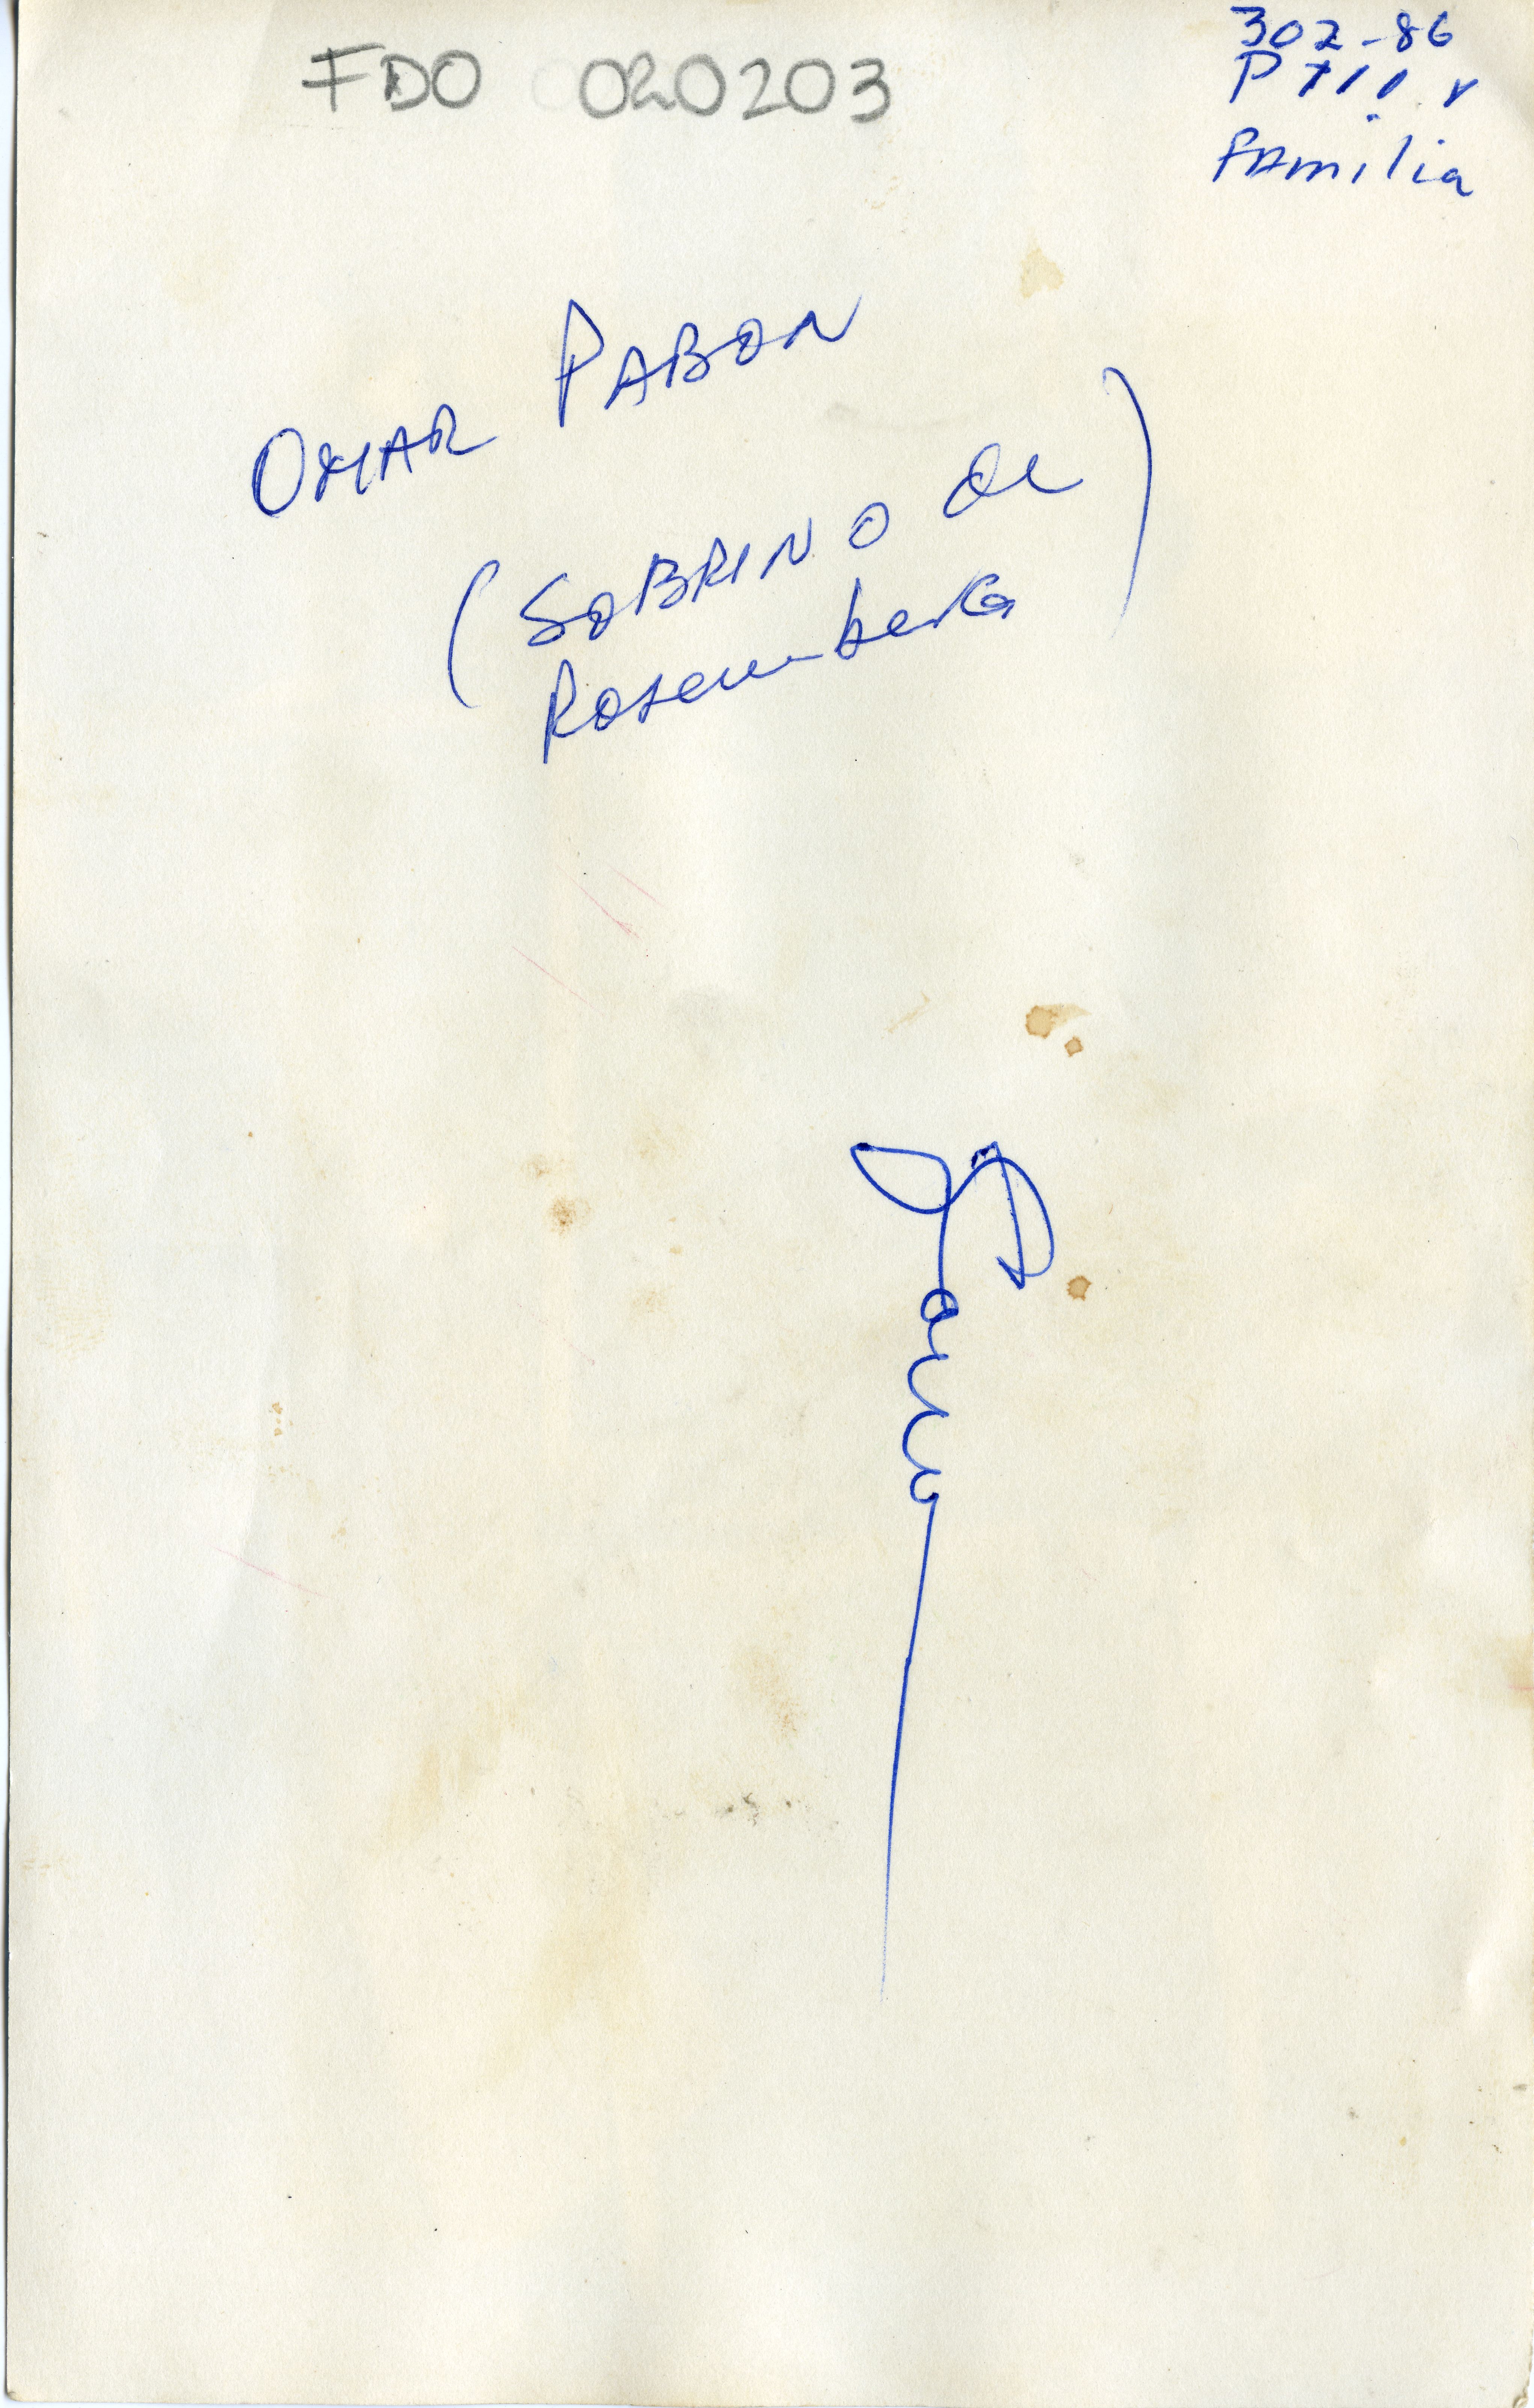 FDO 020203
302-86
Familia
OMAR PABON
(SOBRINO de
Rosemberg)